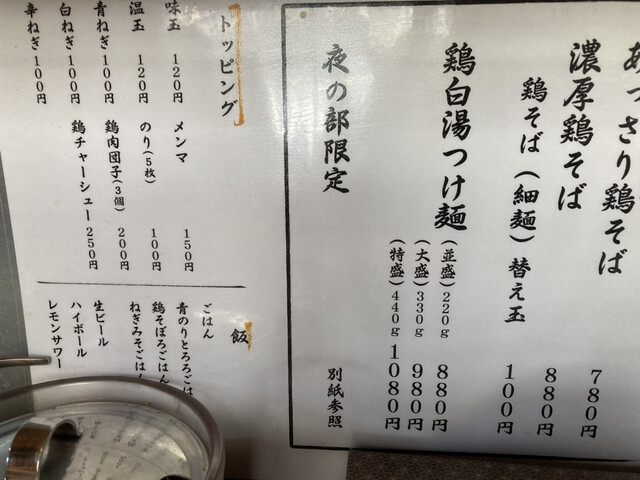 あっさり鶏そば 780円
濃厚鶏そば 880円
鶏そば(細麺)替え玉 100円
鶏白湯つけ麺 (並盛)220g 880円
(大盛)330g 980円
(特盛)440g 1080円
夜の部限定 別紙参照
トッピング
味玉 120円
温玉 120円
青ねぎ 100円
白ねぎ 100円
辛ねぎ 100円
メンマ 150円
のり(5枚) 100円
鶏肉団子(3個) 200円
鶏チャーシュー 250円
飯
ごはん
青のりとろろごは
鶏そぼろごはん
ねぎみそごはん
生ビール
ハイボール
レモンサワー